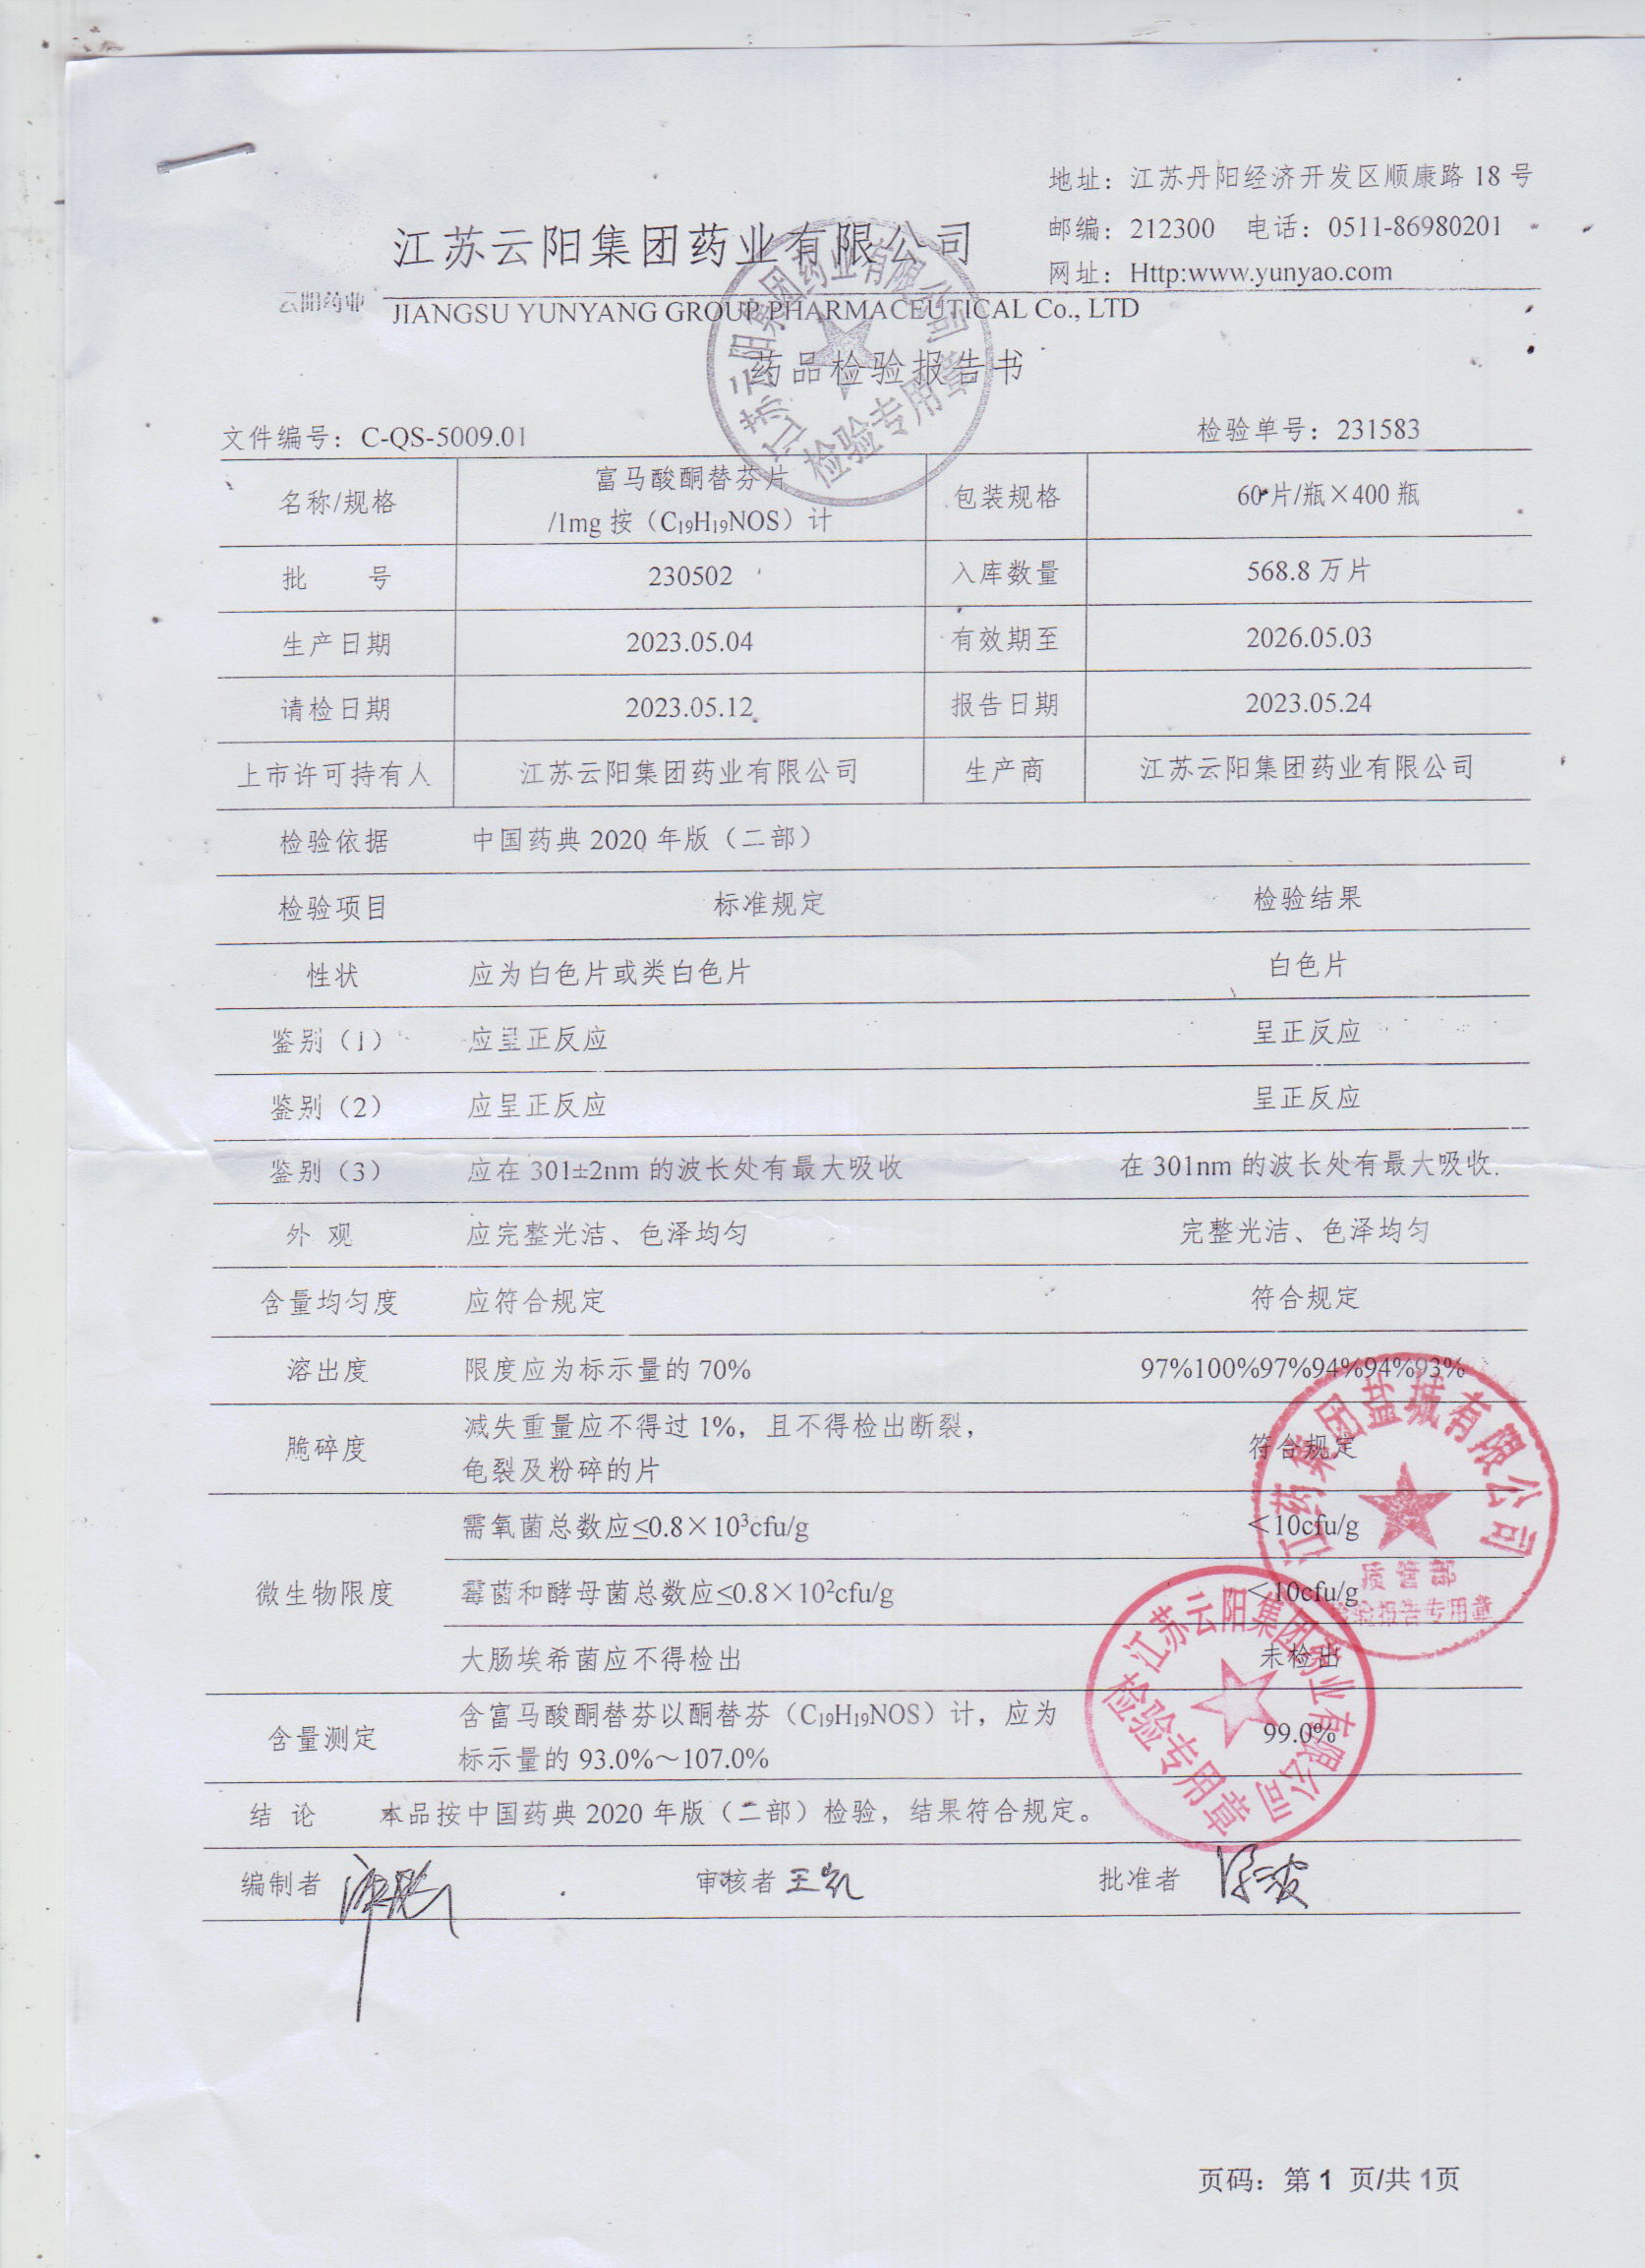 地址：江苏丹阳经济开发区顺康路 18 号
江苏云阳集团药业有限公司
邮编：212300 电话：0511-86980201
网址：Http:www.yunyao.com
云阳药业
JIANGSU YUNYANG GROUP PHARMACEUTICAL Co., LTD
江苏云阳集团药业有限公司
检验专用章
药品检验报告书
文件编号：C-QS-5009.01 检验单号：231583
名称/规格 富马酸酮替芬片 /1mg 按（C₁₉H₁₉NOS）计 包装规格 60 片/瓶×400 瓶
批 号 230502 入库数量 568.8 万片
生产日期 2023.05.04 有效期至 2026.05.03
请检日期 2023.05.12 报告日期 2023.05.24
上市许可持有人 江苏云阳集团药业有限公司 生产商 江苏云阳集团药业有限公司
检验依据 中国药典 2020 年版（二部）
检验项目 标准规定 检验结果
性状 应为白色片或类白色片 白色片
鉴别（1） 应呈正反应 呈正反应
鉴别（2） 应呈正反应 呈正反应
鉴别（3） 应在 301±2nm 的波长处有最大吸收 在 301nm 的波长处有最大吸收.
外 观 应完整光洁、色泽均匀 完整光洁、色泽均匀
含量均匀度 应符合规定 符合规定
溶出度 限度应为标示量的 70% 97%100%97%94%94%93%
脆碎度 减失重量应不得过 1%，且不得检出断裂，
龟裂及粉碎的片 符合规定
微生物限度 需氧菌总数应≤0.8×10³cfu/g ＜10cfu/g
霉菌和酵母菌总数应≤0.8×10²cfu/g ＜10cfu/g
大肠埃希菌应不得检出 未检出
含量测定 含富马酸酮替芬以酮替芬（C₁₉H₁₉NOS）计，应为
标示量的 93.0%～107.0% 99.0%
江药集团盐城有限公司
质管部
检验报告专用章
江苏云阳集团药业有限公司
检验专用章
结 论 本品按中国药典 2020 年版（二部）检验，结果符合规定。
编制者 审核者 王凯 批准者
页码：第 1 页/共 1页